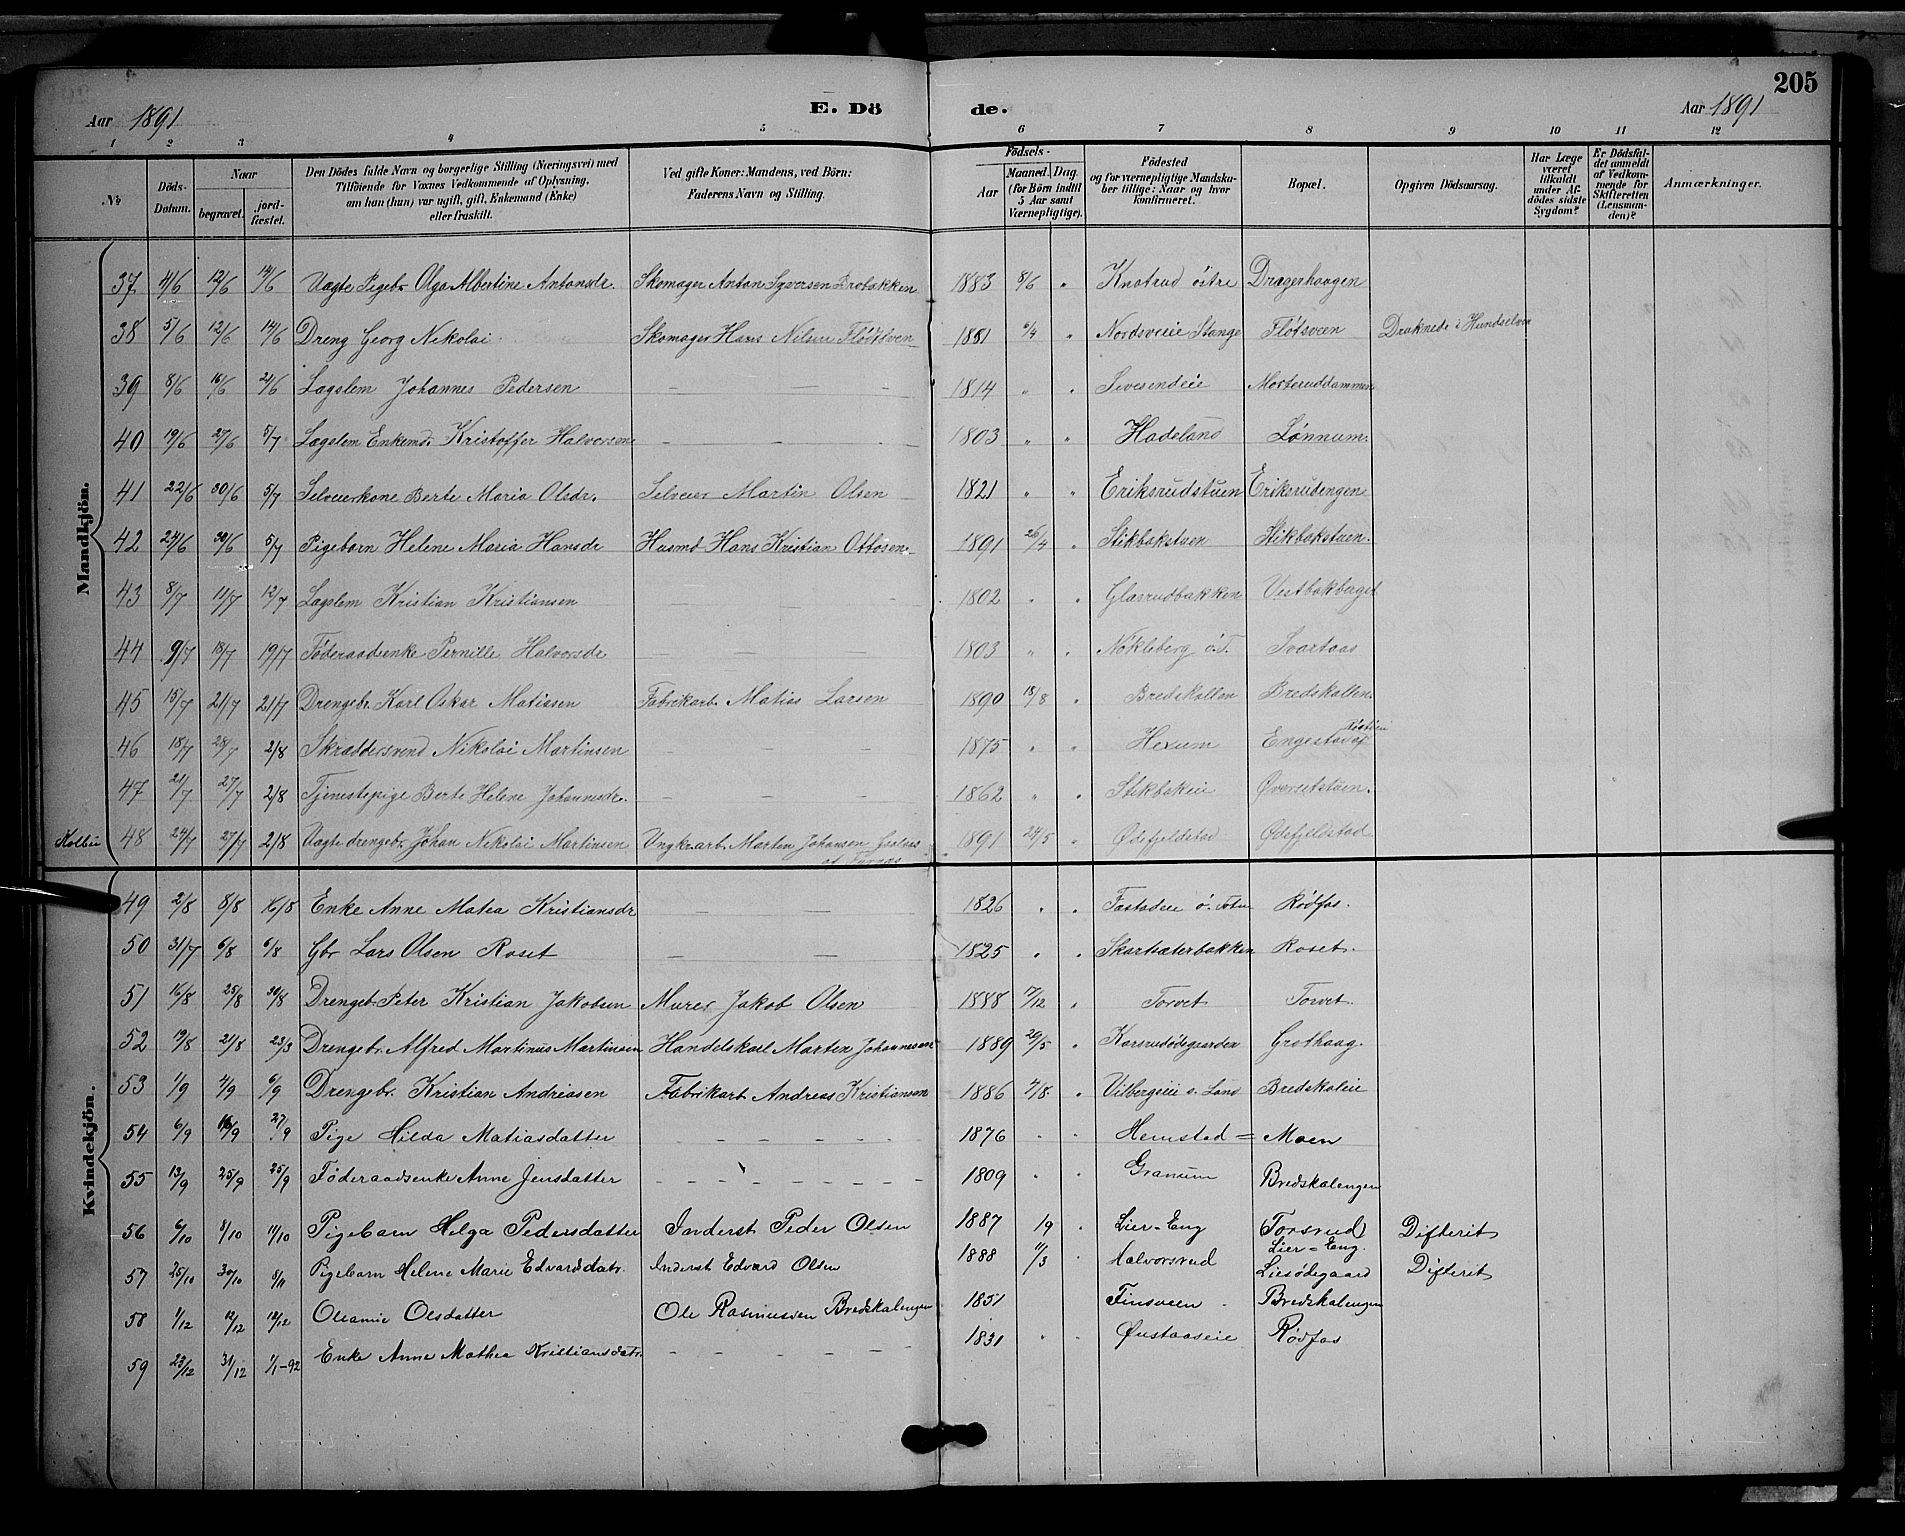 205
Aar 1891
E. Dö
de.
Aar 1891
1 2 3 4 5 6 7 8 9 10 11 12
No
Döds-Datum.
Naar
begravet.
jord-fæstet.
Den Dödes fulde Navn og borgerlige Stilling (Næringsvei) med
Tilföiende for Voxnes Vedkommende af Oplysning,
om han (hun) var ugift, gift, Enkemand (Enke)
eller fraskilt.
Ved gifte Koner: Mandens, ved Börn:
Faderens Navn og Stilling.
Födsels-
Aar
Maaned. Dag.
(for Börn indtil
5 Aar samt
Værnepligtige).
Födested
og for værnepligtige Mandska-
ber tillige: Naar og hvor
konfirmeret.
Bopæl.
Opgiven Dödsaarsag.
Har Læge
været
tilkaldt
under Af-
dödes sidste
Sygdom?
Er Dödsfal-
det anmeldt
af Vedkom-
mende for
Skifteretten
(Lensman-
den)?
Anmærkninger.
Mandkjön.
37 4/6 12/6 14/6 Uægte Pigebr. Olga Albertine Antonsdr. Skomager Anton Syversen Brobakken 1883 8/6 " Knatrud östre Dragerhaugen
38 5/6 12/6 14/6 Dreng Georg Nikolai Skomager Hans Nilsen Flödtsven 1881 /4 " Nordsveie Stange Flötsveen Druknede i Hundselven
39 8/6 16/6 21/6 Lægslem Johannes Pedersen — — — 1814 " " Sivesendeie Mosteruddammen
40 19/6 27/6 5/7 Lægslem Enkemd. Kristoffer Halvorsen — — — 1803 " " Hadeland Lønnum.
41 22/6 30/6 5/7 Selveierkone Berte Maria Olsdr. Selveier Martin Olsen 1821 " " Eriksrudstuen Eriksrudengen
42 24/6 30/6 5/7 Pigebarn Helene Maria Hansdr Husmd Hans Kristian Ottosen. 1891 26/4 " Stikbakstuen Stikbakstuen.
43 8/7 11/7 12/7 Lægslem Kristian Kristiansen — — — 1802 " " Glæsrudbakken Vestbakberget
44 9/7 18/7 19/7 Føderaadsenke Pernille Halvorsdr — — — 1803 " " Nøkleberg ö.T. Svartaas
45 15/7 21/7 21/7 Drengebr. Karl Oskar Matiasen Fabrikarb. Matias Larsen 1890 18/8 " Bredskallen Bredskallen.
46 18/7 28/7 2/8 Skræddersvend Nikolai Martinsen — — — 1875 " " Hexum Engestad
47 21/7 27/7 2/8 Tjenestepige Berte Helene Johannesdr. — — — 1862 " " Stikbakeie Øverseitstuen.
Kolbu 48 24/7 27/7 2/8 Uægte drengebr. Johan Nikolai Martinsen Ungkr.arb. Martin Johansen 1891 24/5 " Ødefjeldstad Ødefjeldstad
Kvindekjön.
49 2/8 8/8 16/8 Enke Anne Matea Kristiansdr — — — 1826 " " Fastadeie ö. Toten Rødfos.
50 31/7 6/8 6/8 Gbr Lars Olsen Roset — — 1825 " " Skartsæterbakken Roset.
51 16/8 25/8 30/8 Drengebr. Peter Kristian Jakobsen Murer Jakob Olsen 1888 17/12 " Torvet Torvet.
52 19/8 21/8 23/3 Drengebr. Alfred Martinus Martinsen Handelskarl Martin Johannesen 1889 20/5 " Karsrudödegaarden Grothaug.
53 1/9 4/9 6/9 Drengebr. Kristian Andreasen Fabrikarb Andreas Kristiansen 1886 4/8. " Vilbergseie s. Land Bredskaleie
54 6/9 16/9 27/9 Pige Hilda Matiasdatter — — — 1876 " " Hemstad = Moen
55 13/9 25/9 25/9 Føderaadsenke Anne Jensdatter — — — 1809 " " Granum Bredskalengen
56 6/10 8/10 11/10 Pigebarn Helga Pedersdatter Inderst Peder Olsen 1887 19 Lier-Eng Torsrud Difterit
Lier = Eng.
57 25/10 30/10 8/11 Pigebarn Helene Marie Edvardsdatr. Inderst Edvard Olsen 1888 11/3 Halvorsrud Liesödegaard Difterit
58 1/12 12/12 12/12 Oleanie Olsdatter Ole Rasmussen Bredskalengen 1851 Finsveen Bredskalengen
59 23/12 31/12 1/1-92 Enke Anne Mathea Kristiansdatr. — — — 1831 " " Øustaaseie Rødfos